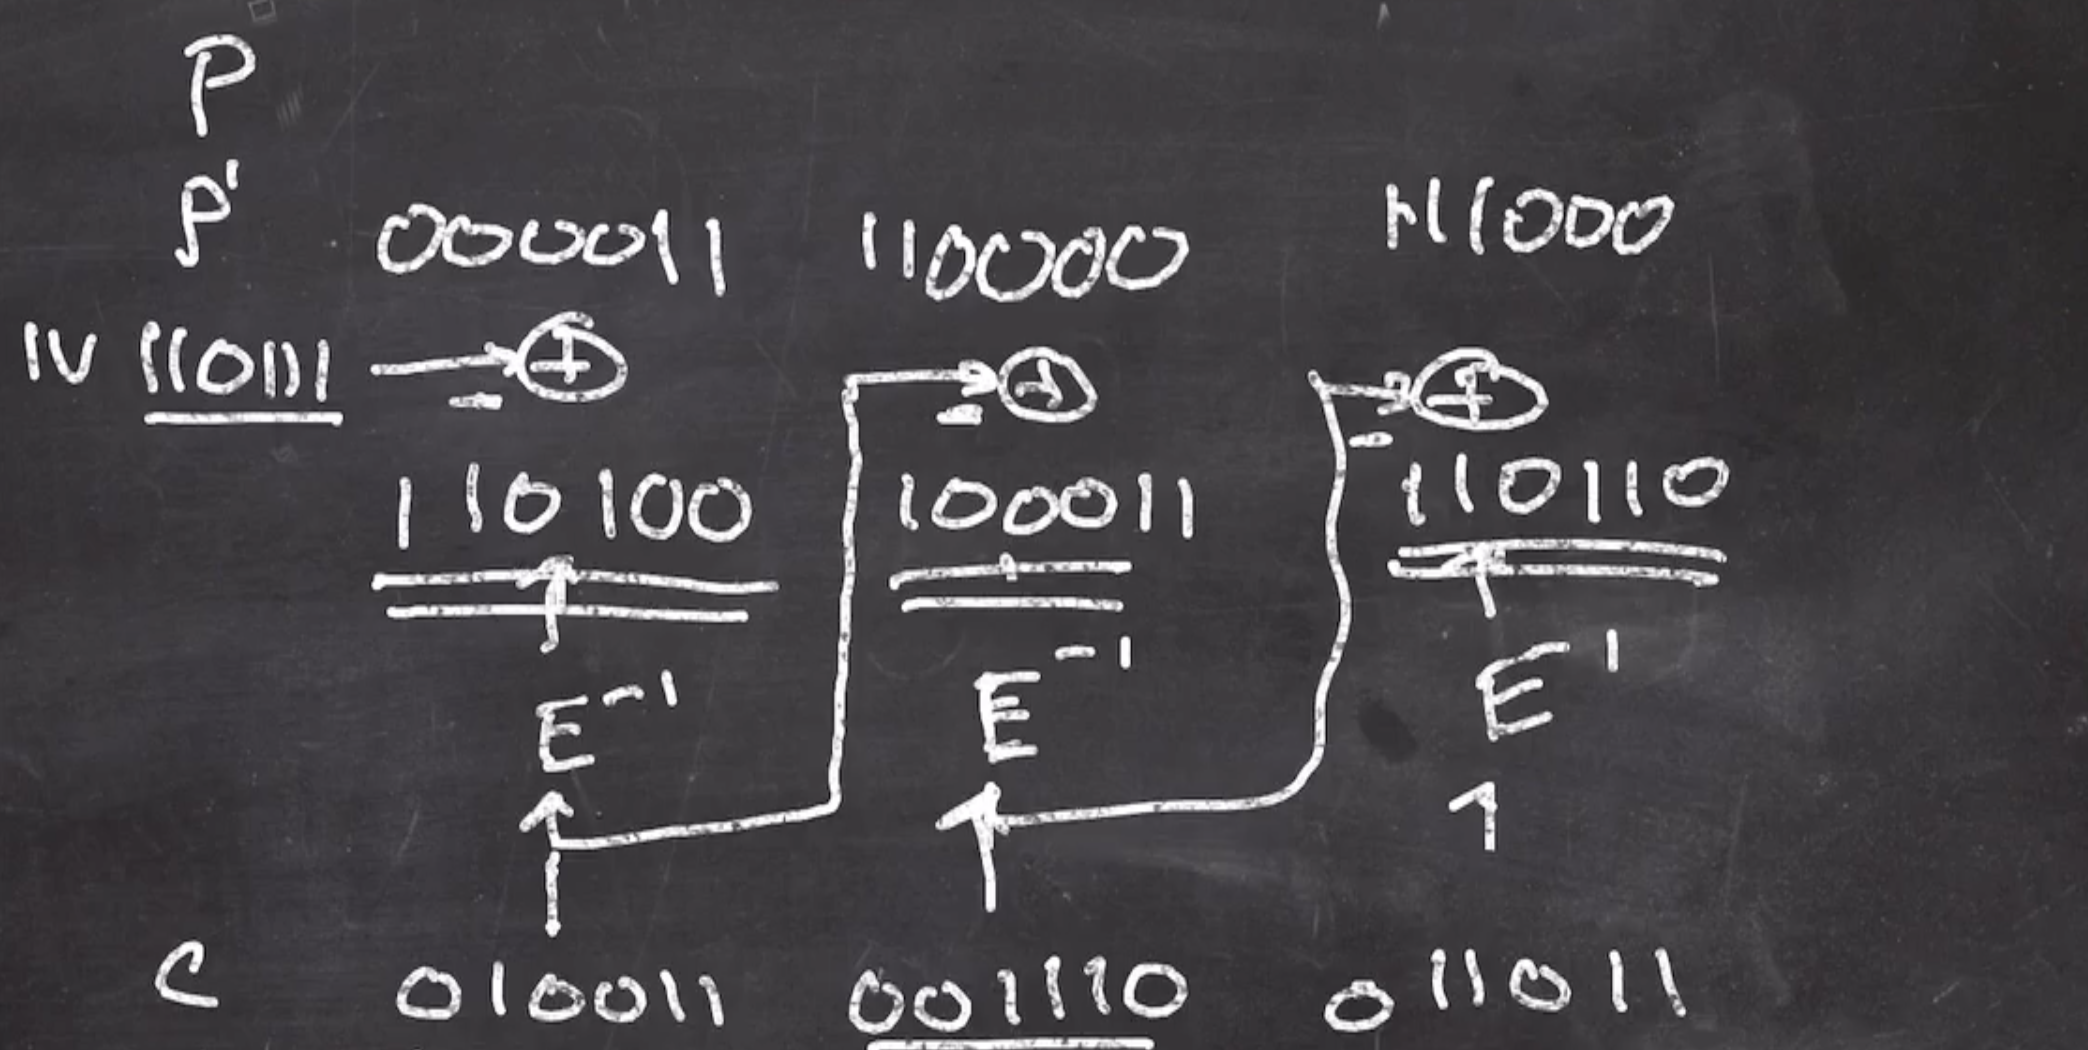 P
P' 000011 110000 111000
IV 110111 → ⊕ → ⊕ → ⊕
110100 100011 110110
E⁻¹ E⁻¹ E⁻¹
C 010011 001110 011011